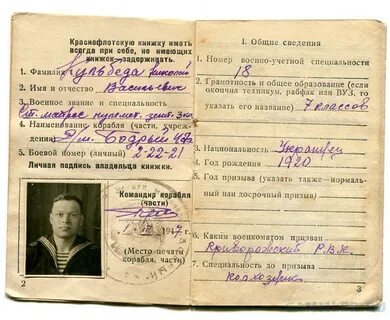 Краснофлотскую книжку иметь
всегда при себе, не имеющих
книжек—задерживать.
1. Фамилия Кульбеда Николай
2. Имя и отчество Васильевич
3. Военное звание и специальность
Ст. матрос пулемет. зенит.
4. Наименование корабля (части, учреж-
дения) Э/м. Бодрый ЧФ
5. Боевой номер (личный) 2-22-21
Личная подпись владельца книжки.
Командир корабля
(части)
1947 г.
(Место печати
корабля, части)
2
I. Общие сведения
1. Номер военно-учетной специальности
18
2. Грамотность и общее образование (если
окончил техникум, рабфак или ВУЗ, то
указать его название) 7 классов
3. Национальность Украинец
4. Год рождения 1920
5. Год призыва (указать также—нормаль-
ный или досрочный призыв)
6. Каким военкоматом призван
Криворожский Р.В.К.
7. Специальность до призыва
Колхозник
3